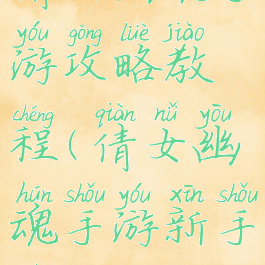 yóu gōng lüè jiào
游攻略教
chéng qiàn nǚ yōu
程(倩女幽
hún shǒu yóu xīn shǒu
魂手游新手